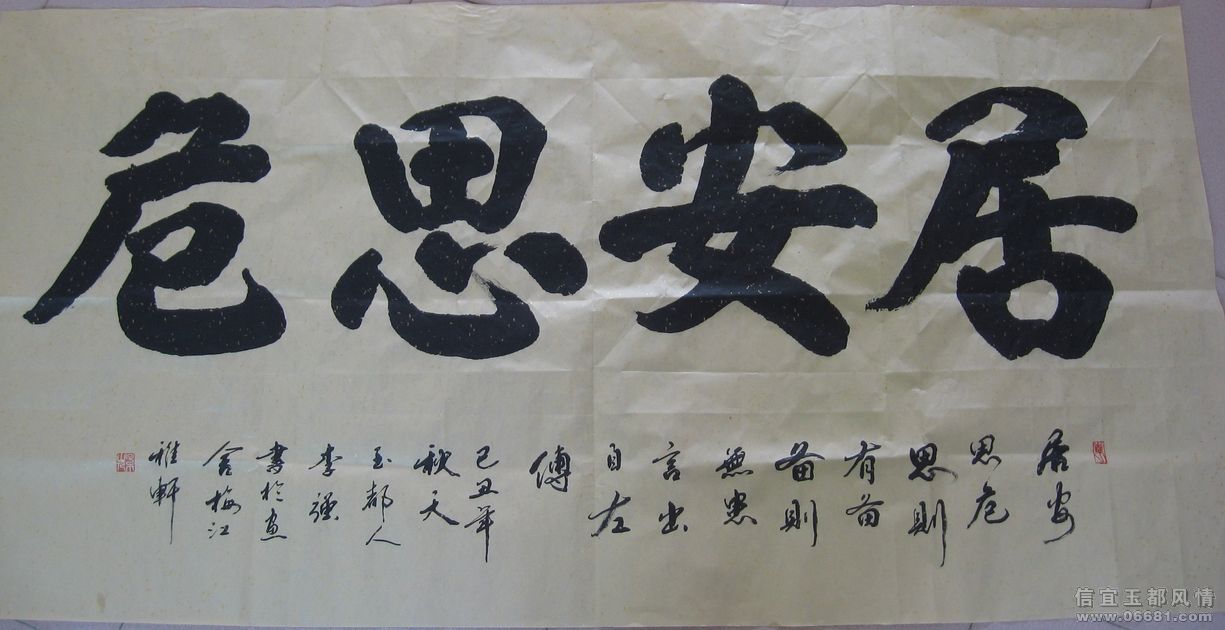 居安思危
居安
思危
思則
有备
备則
無患
言出
自左
傅
己丑年
秋天
玉都人
李强
書於
舍梅江
雅軒
信宜玉都风情
www.06681.com